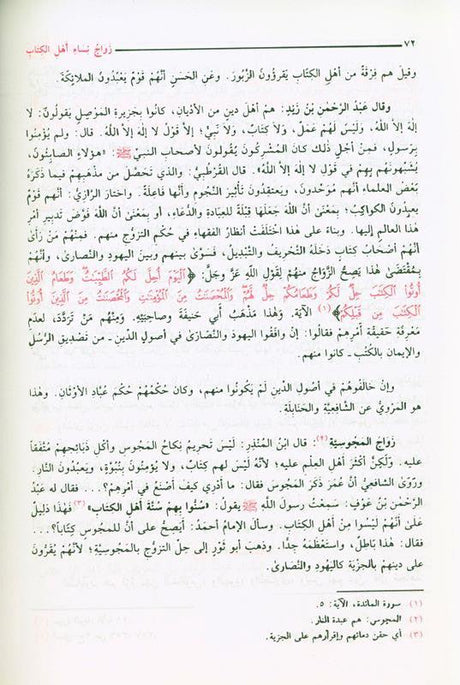 ٧٢ زَوَاجُ نِسَاءِ أَهْلِ الكِتَابِ
وقيلَ هم فِرْقَةٌ من أهلِ الكِتَابِ يَقرؤونَ الزَّبُورَ. وعَنِ الحَسَنِ أنَّهُمْ قَوْمٌ يَعْبُدُونَ الملائِكَةَ.
وقال عَبْدُ الرَّحْمٰنِ بْنُ زَيْدٍ: هم أَهْلُ دينٍ من الأديانِ، كانُوا بجَزيرةِ المَوْصِلِ يقولُونَ: لا
إِلٰهَ إلاَّ اللَّهُ، وَلَيْسَ لَهُمْ عَمَلٌ، وَلاَ كِتَابٌ، وَلاَ نَبِيٌّ؛ إلاَّ قَوْلُ لا إلٰهَ إلاَّ اللَّهُ. قال: ولم يُؤْمنُوا
بِرَسولٍ، فمنْ أَجْلِ ذلك كان المُشْرِكُونَ يَقُولُونَ لأصحابِ النبيِّ ﷺ: «هؤلاءِ الصابِئُونَ،
يُشَبِّهُونَهُم بِهِمْ في قَوْلِ لا إلٰهَ إلا اللَّهُ». قال القُرْطُبِيُّ: والذي تَحَصَّلَ من مذهبِهِم فيما ذَكَرَهُ
بَعْضُ العلماءِ أنَّهُم مُوَحِّدونَ، ويَعتقِدُونَ تأثيرَ النُّجُومِ وأنَّها فَاعِلَةٌ. واختارَ الرازِيُّ: أنَّهم قومٌ
يعبدُونَ الكواكِبَ؛ بِمَعْنَى أنَّ اللَّهَ جَعَلَها قِبْلَةً للعِبادَةِ والدُّعَاءِ، أو بمَعْنَى أنَّ اللَّهَ فَوَّضَ تدبيرَ أَمْرِ
هذا العالمِ إليها. وبناءً على هذا اخْتَلَفَتْ أنظارُ الفقهاءِ في حُكْمِ التزوُّجِ منهم. فمنهُمْ مَنْ رَأَىٰ
أنَّهُمْ أصْحَابُ كِتابٍ دَخَلَهُ التَّحْرِيفُ والتَّبْدِيلُ، فَسَوَّىٰ بينهم وبين اليَهودِ والنصارىٰ، وأنَّهُمْ
بِمُقْتَضَىٰ هٰذا يَصِحُّ الزَّوَاجُ منهُمْ لِقولِ اللَّهِ عَزَّ وجَلَّ: ﴿ٱلْيَوْمَ أُحِلَّ لَكُمُ ٱلطَّيِّبَٰتُ وَطَعَامُ ٱلَّذِينَ
أُوتُوا۟ ٱلْكِتَٰبَ حِلٌّ لَّكُمْ وَطَعَامُكُمْ حِلٌّ لَّهُمْ وَٱلْمُحْصَنَٰتُ مِنَ ٱلْمُؤْمِنَٰتِ وَٱلْمُحْصَنَٰتُ مِنَ ٱلَّذِينَ أُوتُوا۟
ٱلْكِتَٰبَ مِن قَبْلِكُمْ﴾(١) الآيَةَ. وَهٰذا مَذْهَبُ أَبي حَنيفَةَ وصاحِبَيْهِ. ومِنْهُم مَنْ تَرَدَّدَ، لعدمِ
مَعْرِفَةِ حقيقَةِ أَمْرِهِمْ فقالُوا: إنْ وافَقُوا اليهودَ والنَّصَارَىٰ في أصولِ الدِّينِ ـ من تَصْدِيقِ الرُّسُلِ
والإيمانِ بالكُتُبِ ـ كانوا منهم.
وإنْ خالفُوهُمْ في أصولِ الدِّينِ لَمْ يَكونُوا منهم، وكان حُكْمُهُمْ حُكْمَ عُبَّادِ الأَوْثَانِ. وهٰذا
هو المَرْوِيُّ عن الشَّافِعِيَّةِ والحَنَابِلَةِ.
زَوَاجُ المَجُوسِيَّةِ(٢): قال ابْنُ المُنْذِرِ: لَيْسَ تَحريمُ نِكاحِ المَجُوسِ وأَكْلِ ذَبائِحِهِمْ مُتَّفَقاً
عليه. ولٰكِنَّ أَكْثَرَ أَهْلِ العِلْمِ عليه؛ لأنَّهُ لَيْسَ لهم كِتابٌ، ولا يُؤمِنُونَ بِنُبُوَّةٍ، ويَعبدُونَ النَّارَ.
ورَوَى الشافعِيُّ أنَّ عُمَرَ ذَكَرَ المَجُوسَ فقالَ: ما أَدْرِي كيفَ أَصْنَعُ في أَمْرِهِمْ؟... فقالَ له عَبْدُ
الرَّحْمٰنِ بْنُ عَوْفٍ: سَمِعْتُ رسولَ اللَّهِ ﷺ يقولُ: «سُنُّوا بِهِمْ سُنَّةَ أَهْلِ الكِتَابِ»(٣) فَهٰذا دَلِيلٌ
عَلىٰ أنَّهُمْ لَيْسُوا مِنْ أَهْلِ الكِتَابِ. وسألَ الإمامُ أَحمدُ: أَيَصِحُّ عَلى أَنَّ لِلْمَجُوسِ كِتَاباً؟...
فقالَ: هٰذا بَاطِلٌ، واستَعْظَمَهُ جِدًّا. وذَهَبَ أبو ثَوْرٍ إلى حِلِّ التزَوُّجِ بالمَجُوسِيَّةِ؛ لأنَّهُمْ يُقَرُّونَ
على دِينِهِم بالجِزْيَةِ كاليَهودِ والنَّصَارَىٰ.
(١) سورة المائدة، الآية: ٥.
(٢) المجوس: هم عبدة النار.
(٣) أي حقن دمائهم وإقرارهم على الجزية.